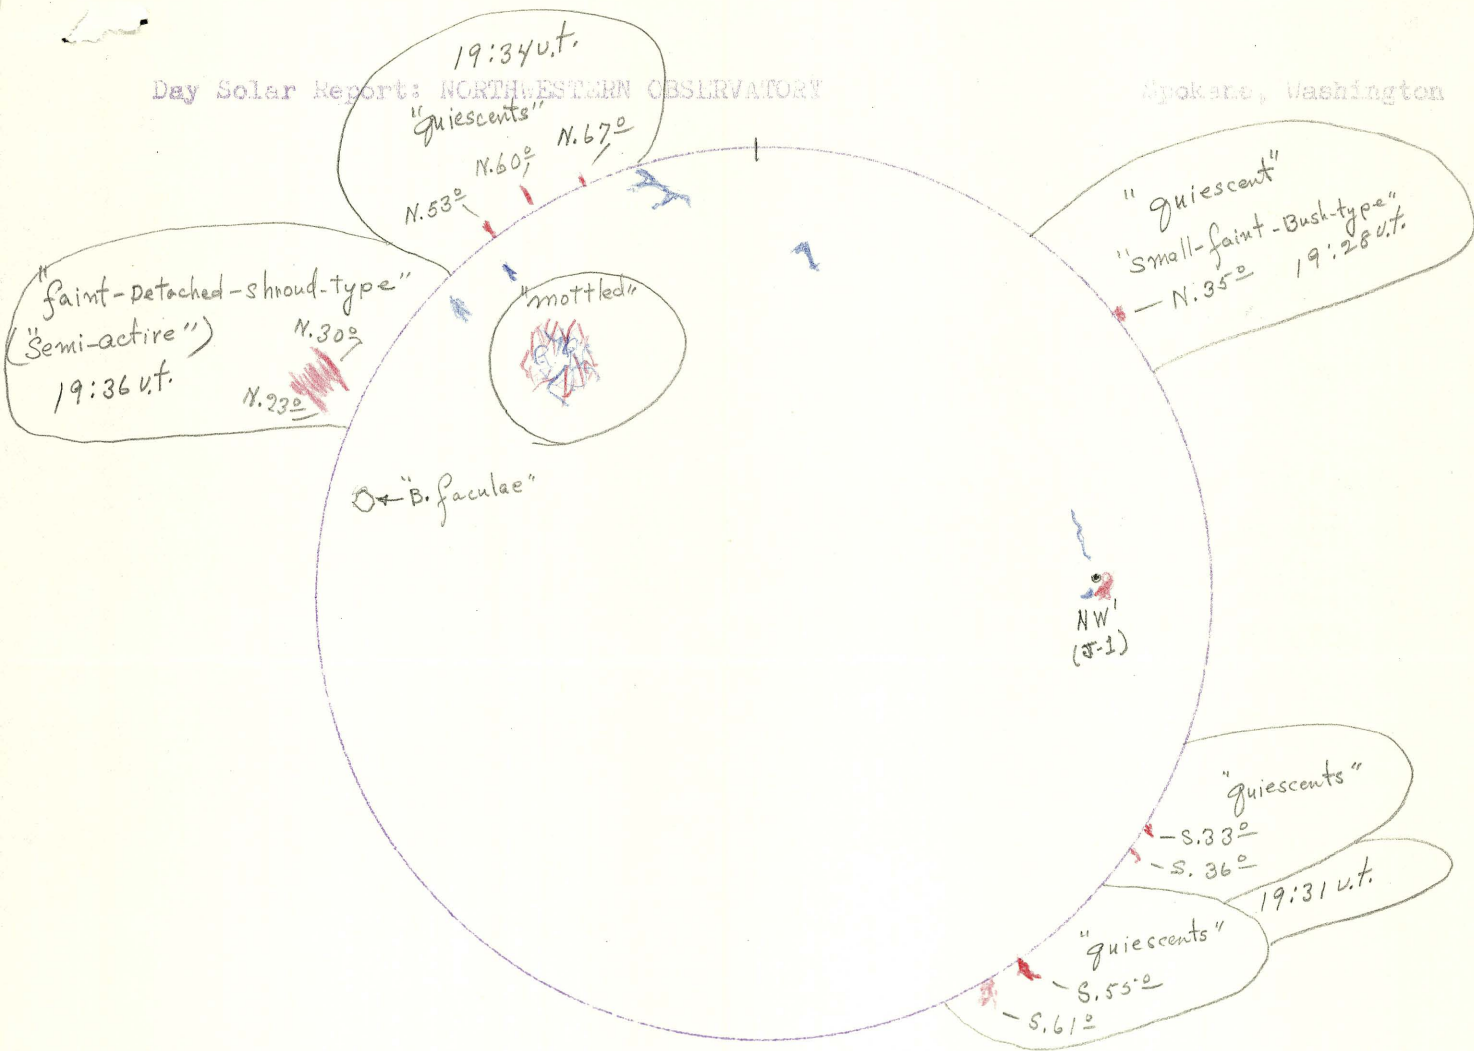 19:34 u.t.
Day Solar Report: NORTHWESTERN OBSERVATORY
Spokane, Washington
"quiescents"
N.67º
N.60º
N.53º
"quiescent"
"small-faint-Bush-type"
19:28 u.t.
— N.35º
"faint-Detached-shroud-type"
("Semi-active")
N.30º
19:36 u.t.
N.23º
"mottled"
"B. faculae"
NW'
(J-1)
"quiescents"
— S.33º
— S. 36º
19:31 u.t.
"quiescents"
— S.55º
— S.61º